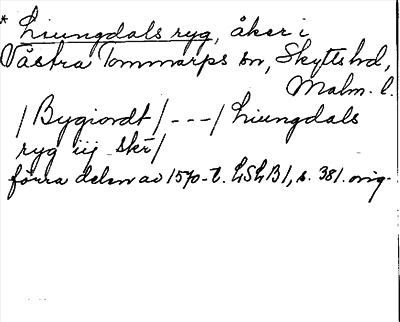 * Liungdals ryg, åker i
Västra Tommarps sn, Skytts hd,
Malm. l.
/Bygiordt/---/Liungdals
ryg iij skr/
förra delen av 1570-t. LSLB1, s. 381. orig.